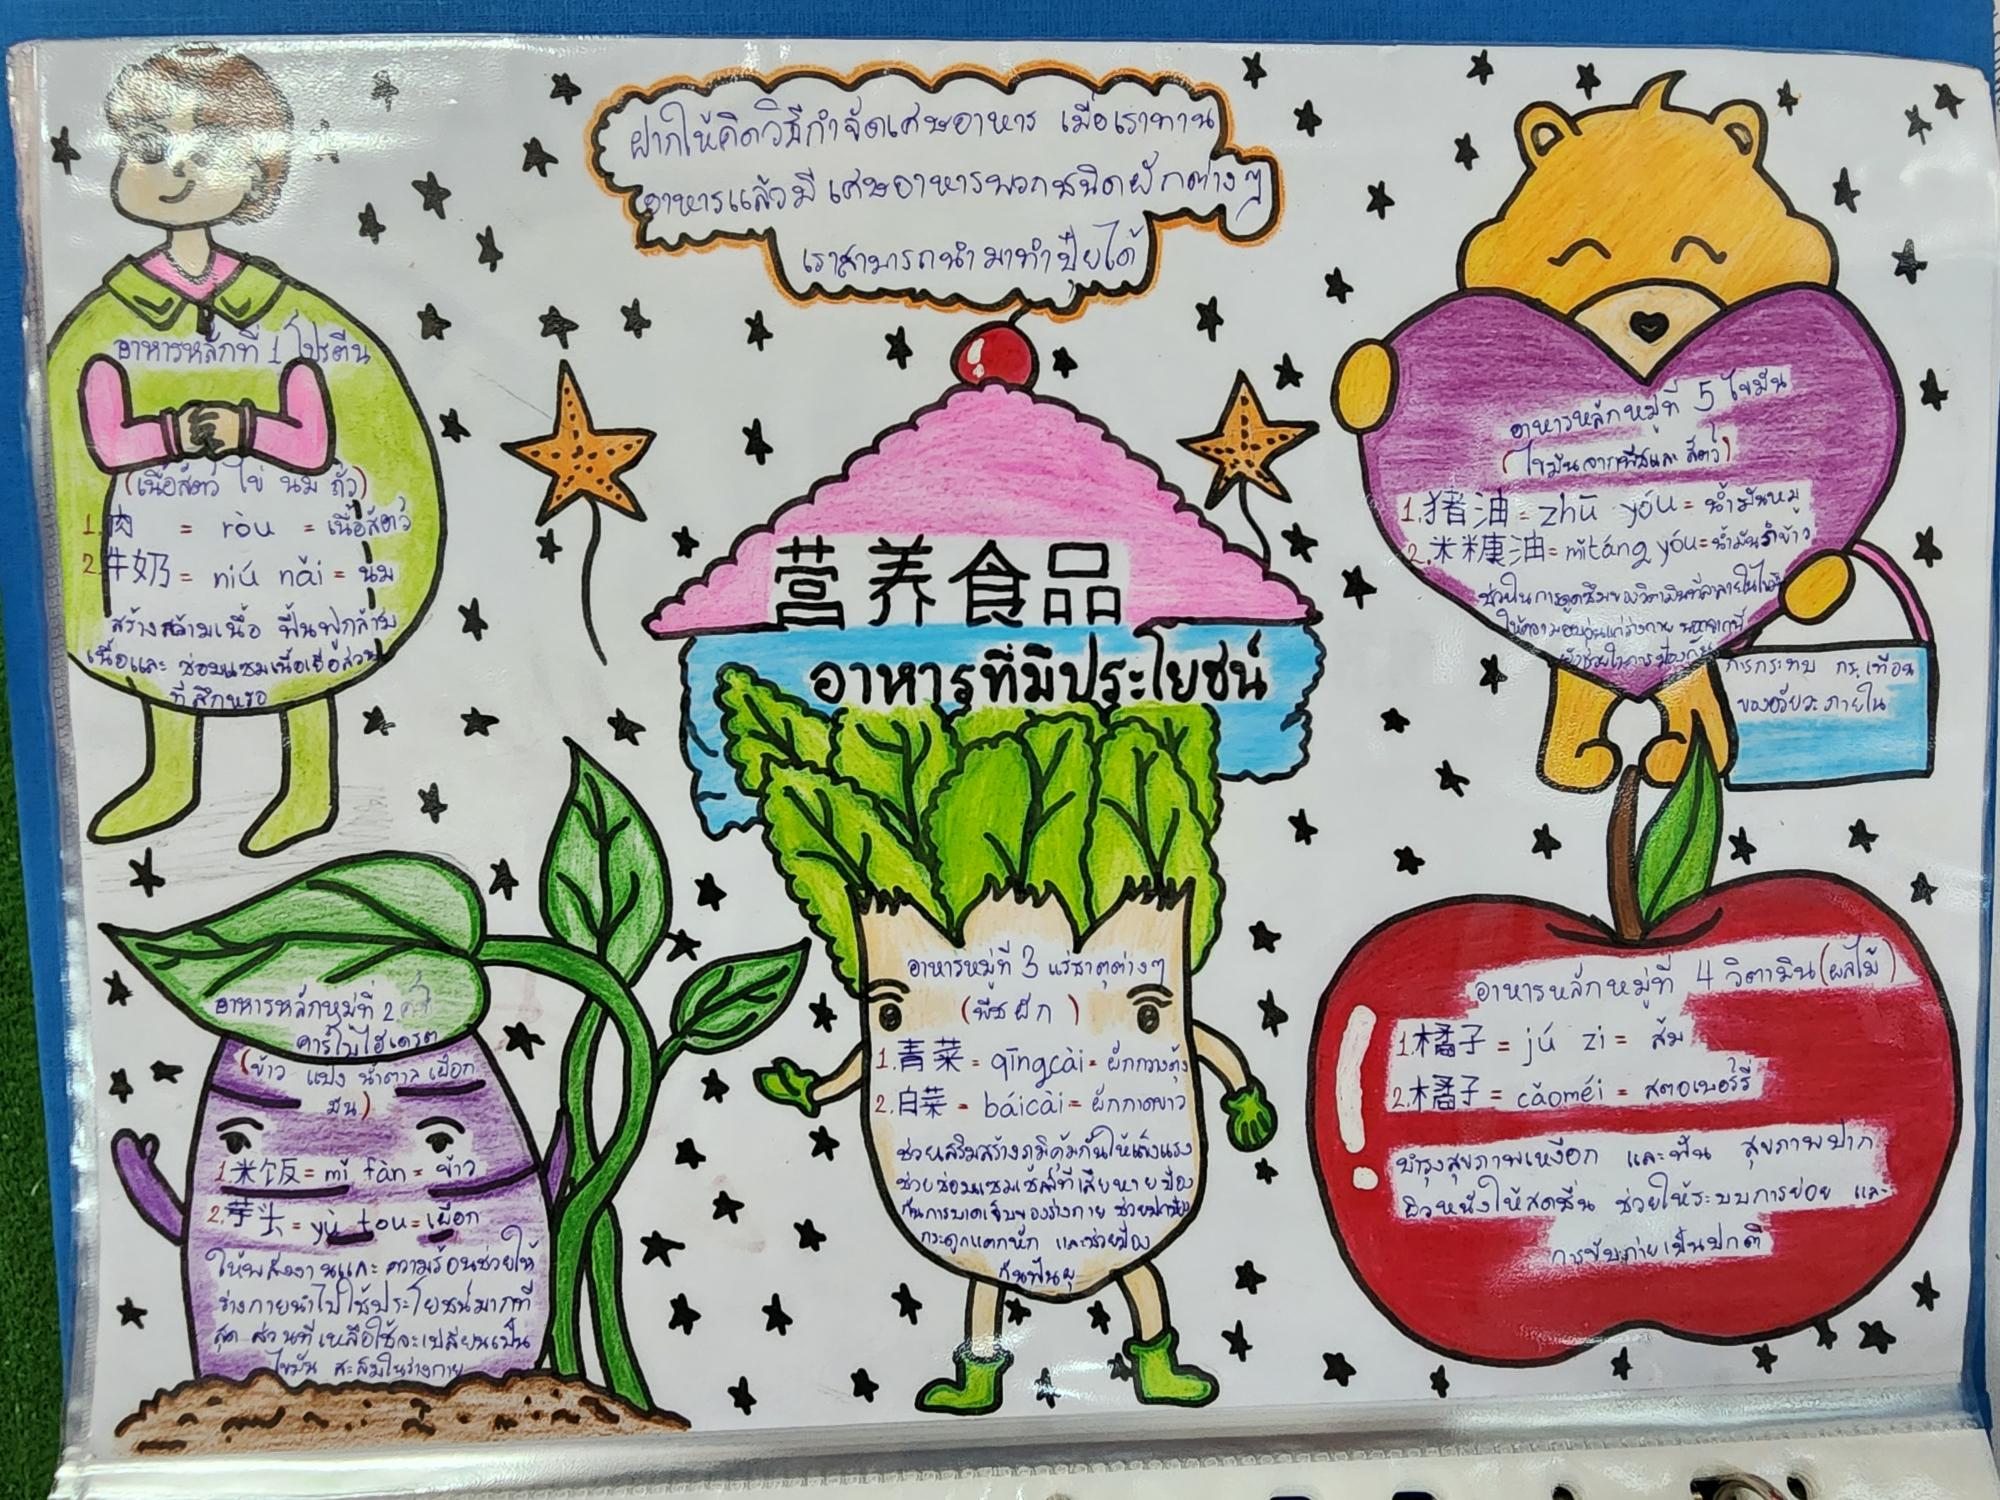 ฝากให้คิดวิธีกำจัดเศษอาหาร เมื่อเราทาน
อาหารแล้วมีเศษอาหารพวกชนิดผักต่างๆ
เราสามารถนำมาทำปุ๋ยได้
营养食品
อาหารที่มีประโยชน์
อาหารหลักที่ 1 โปรตีน
(เนื้อสัตว์ ไข่ นม ถั่ว)
1.肉 = ròu = เนื้อสัตว์
2.牛奶 = niú nǎi = นม
สร้างกล้ามเนื้อ ฟื้นฟูกล้าม
เนื้อและ ซ่อมแซมเนื้อเยื่อส่วน
ที่สึกหรอ
อาหารหลักหมู่ที่ 2
คาร์โบไฮเดรต
(ข้าว แป้ง น้ำตาล เผือก
มัน)
1.米饭 = mǐ fàn = ข้าว
2.芋头 = yù tou = เผือก
ให้พลังงานและ ความร้อนช่วยให้
ร่างกายนำไปใช้ประโยชน์มากที่
สุด ส่วนที่เหลือใช้จะเปลี่ยนเป็น
ไขมัน สะสมในร่างกาย
อาหารหมู่ที่ 3 แร่ธาตุต่างๆ
(พืช ผัก)
1.青菜 = qīngcài = ผักกวางตุ้ง
2.白菜 = báicài = ผักกาดขาว
ช่วยเสริมสร้างภูมิคุ้มกันให้แข็งแรง
ช่วยซ่อมแซมเซลล์ที่เสียหาย ป้อง
กันการบาดเจ็บของร่างกาย ช่วยปกป้อง
กระดูกแตกหัก และช่วยป้อง
กันฟันผุ
อาหารหลักหมู่ที่ 4 วิตามิน (ผลไม้)
1.橘子 = jú zi = ส้ม
2.橘子 = cǎoméi = สตอเบอร์รี่
บำรุงสุขภาพเหงือก และฟัน สุขภาพปาก
ผิวหนังให้สดชื่น ช่วยให้ระบบการย่อย และ
การขับถ่ายเป็นปกติ
อาหารหลักหมู่ที่ 5 ไขมัน
(ไขมันจากพืชและ สัตว์)
1.猪油 = zhū yóu = น้ำมันหมู
2.米糠油 = mǐtáng yóu = น้ำมันรำข้าว
ช่วยในการดูดซึมของวิตามินที่ละลายในไขมัน
ให้ความอบอุ่นแก่ร่างกาย นอกจากนี้
ยังช่วยในการป้องกัน
การกระทบ กระเทือน
ของอวัยวะภายใน